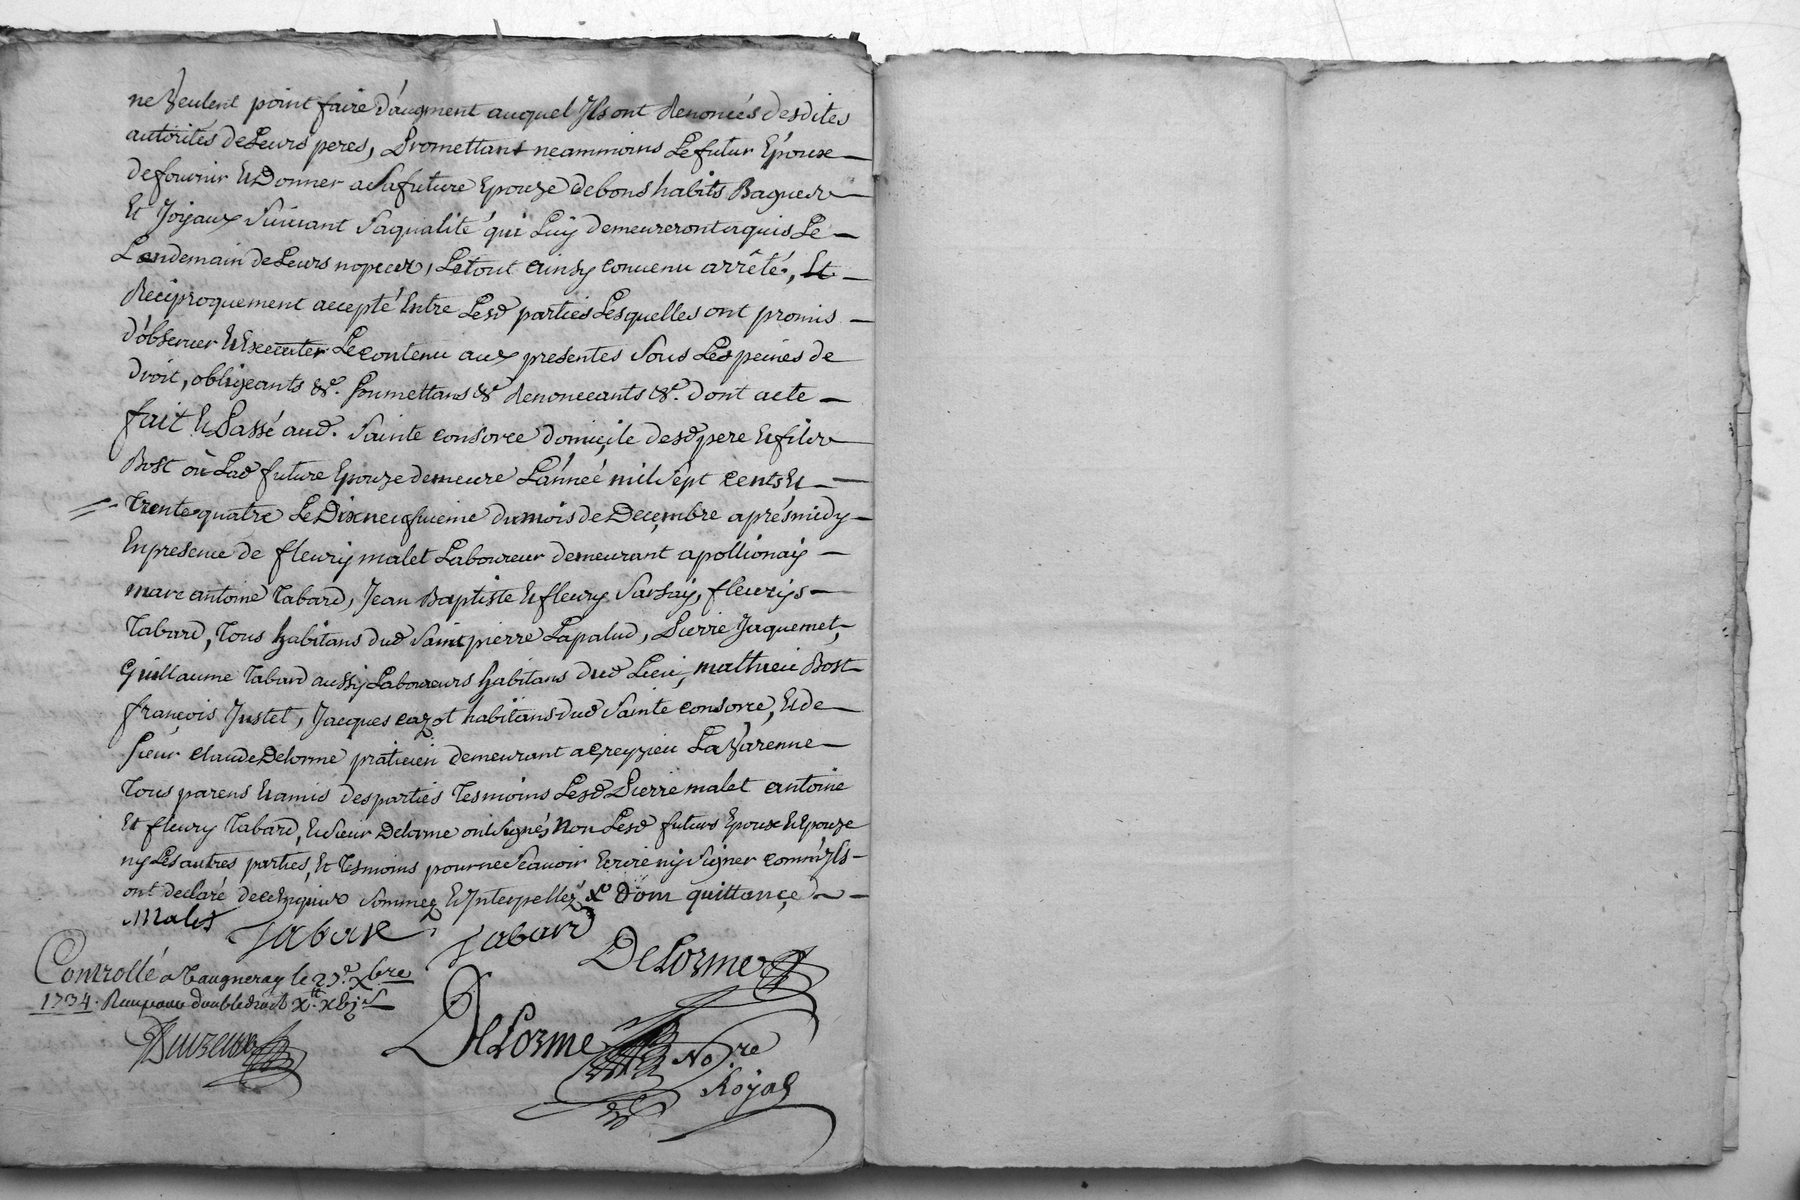 ne Veulent point faire d'augment auquel Ils ont Renoncés desdites
autorités de Leurs peres, Promettant neammoins Le futur Epoux
de fournir Et Donner a Sa future Epouze de bons habits Bagues
Et Joyaux Suivant Sa qualité qui Luy demeureront aquis Le
Lendemain de Leurs nopces, Le tout ainsy convenu arrêté, Et
Reciproquement accepté Entre Lesd parties Lesquelles ont promis
d'observer Et Executer Le contenu aux presentes Sous Les peines de
droit, obligeants &c. Soumettans &c Renonceants &c. dont acte
fait Et Passé aud. Sainte consorce domicile desd pere Et fils
Bost où Lad future Epouze demeure L'année mil Sept cents Et
trente quatre Le Dix neufvieme du mois de Decembre aprésmidy
En presence de fleury malet Laboureur demeurant a pollionay
marc antoine Tabard, Jean Baptiste Et fleury Sarsay, fleurys
Tabard, Tous habitans dud Saint pierre Lapalud, Pierre Jaquemet,
Guillaume Tabard aussy Laboureurs habitans dud Lieu, mathieu Bost
françois Justet, Jacques cazot habitans dud Sainte consorce, Et de
Sieur claude Delorme praticien demeurant a greyzieu La Varenne
Tous parens Et amis des parties Tesmoins Lesd Pierre malet antoine
Et fleury Tabard, Et Sieur Delorme ont Signé, Non Lesd futurs Epoux Et Epouze
ny Les autres parties, Et Tesmoins pour ne Scavoir Ecrire ny Signer comm'Ils
ont declaré de ce Enquis Sommez Et Interpellez Dont quittance
Malet
Tabard Tabard
DeLorme
Controllé a Vaugneray le 27e Xbre
1734. Reçu double droit
DeLorme
Nore
Royal